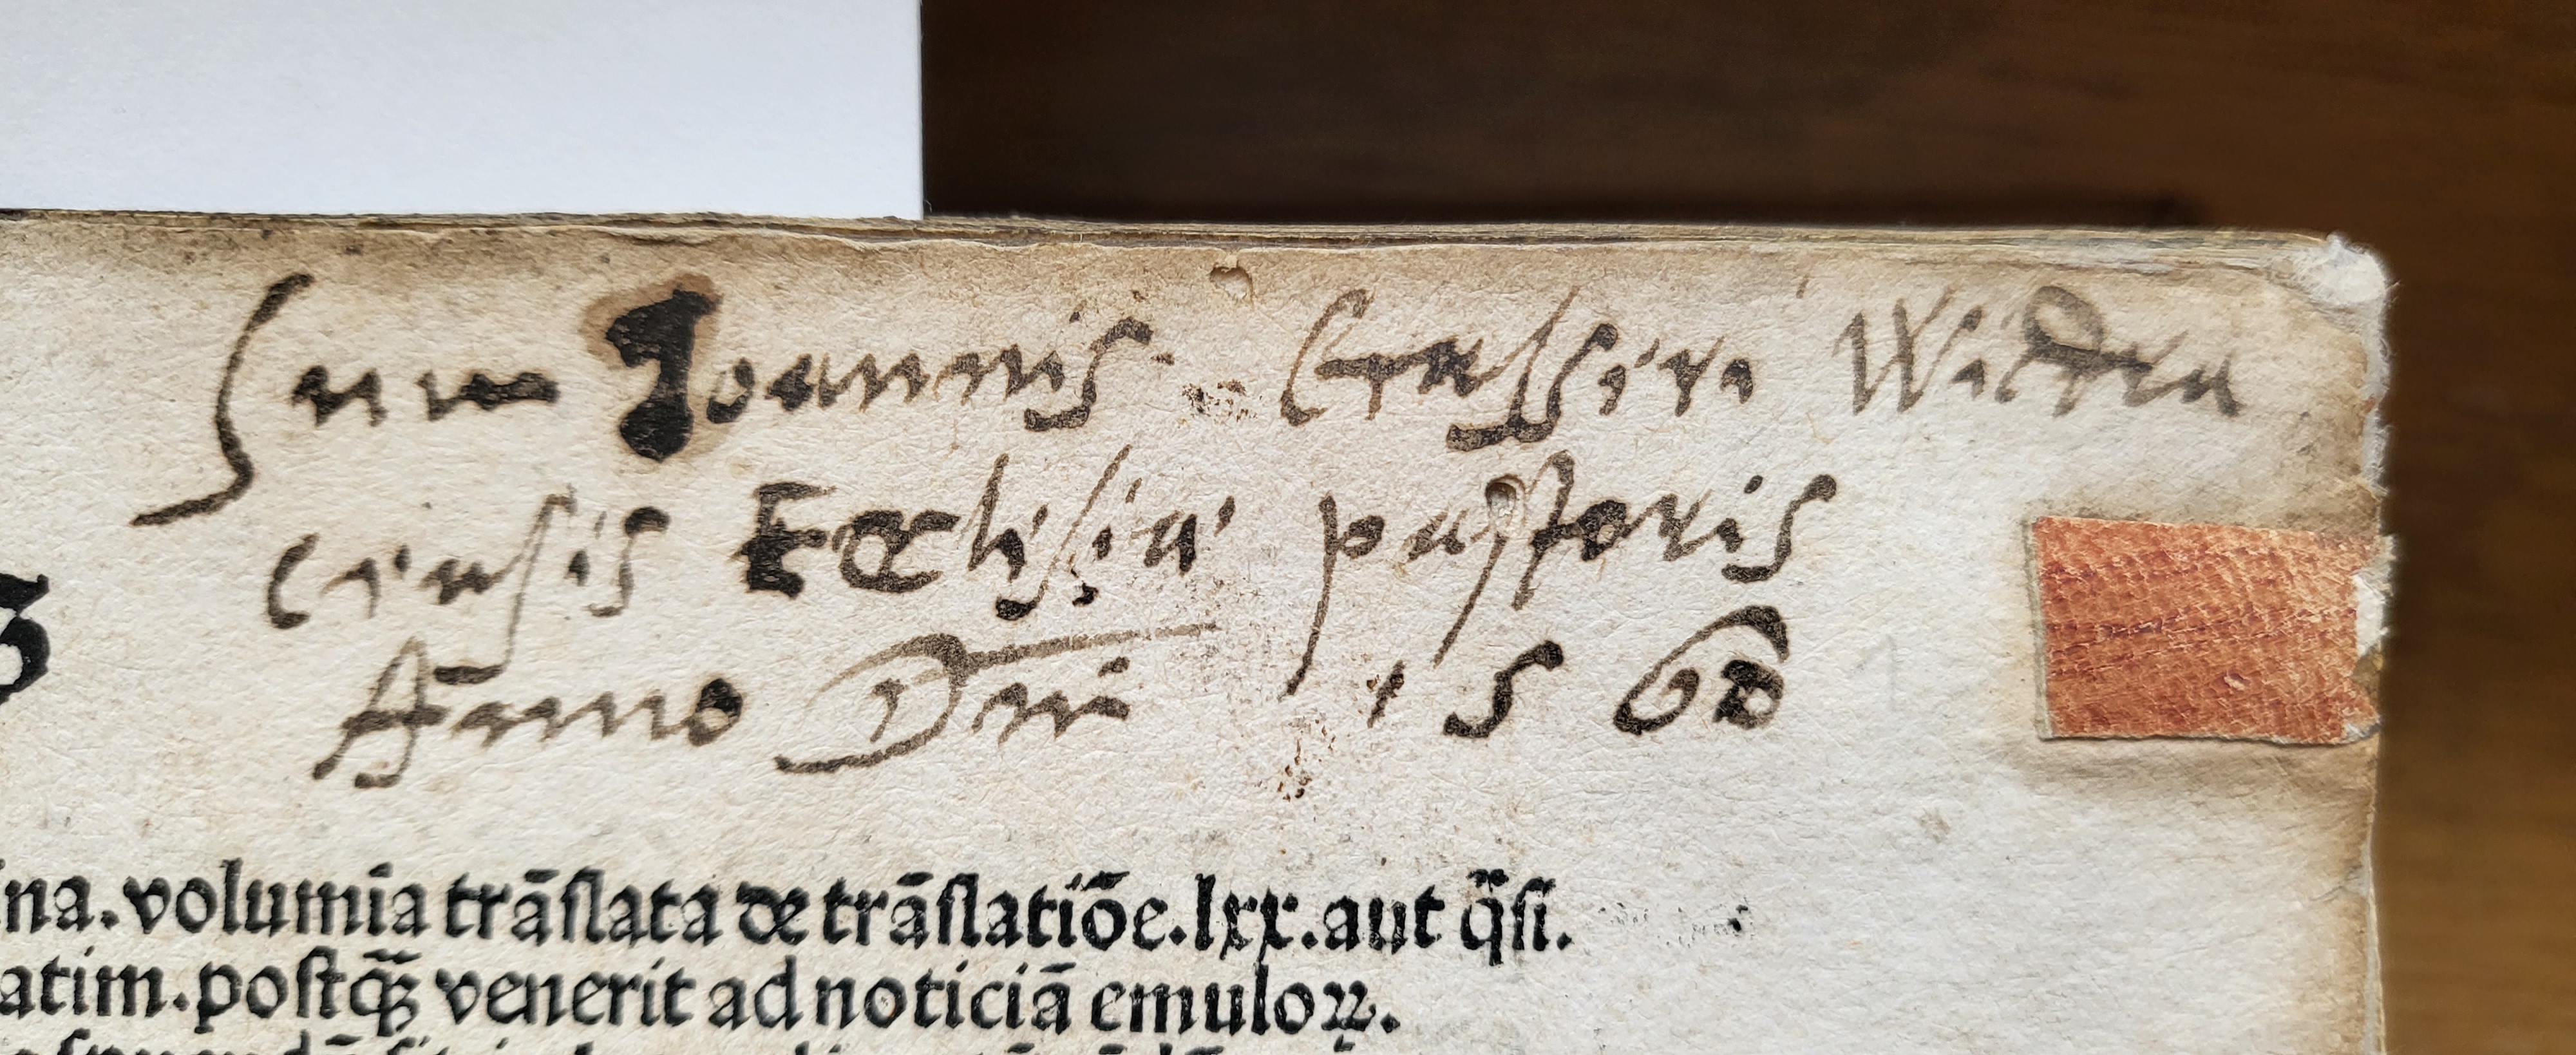 Sum Joannis Crasseri Widen
censis Ecclesiæ pastoris
Anno Dn̄i 1560
ina. volumīa trāſlata de trāſlatiōe. lxx. aut q̄ſi.
atim. poſtq̄ꝫ venerit ad noticiā emuloꝝ.